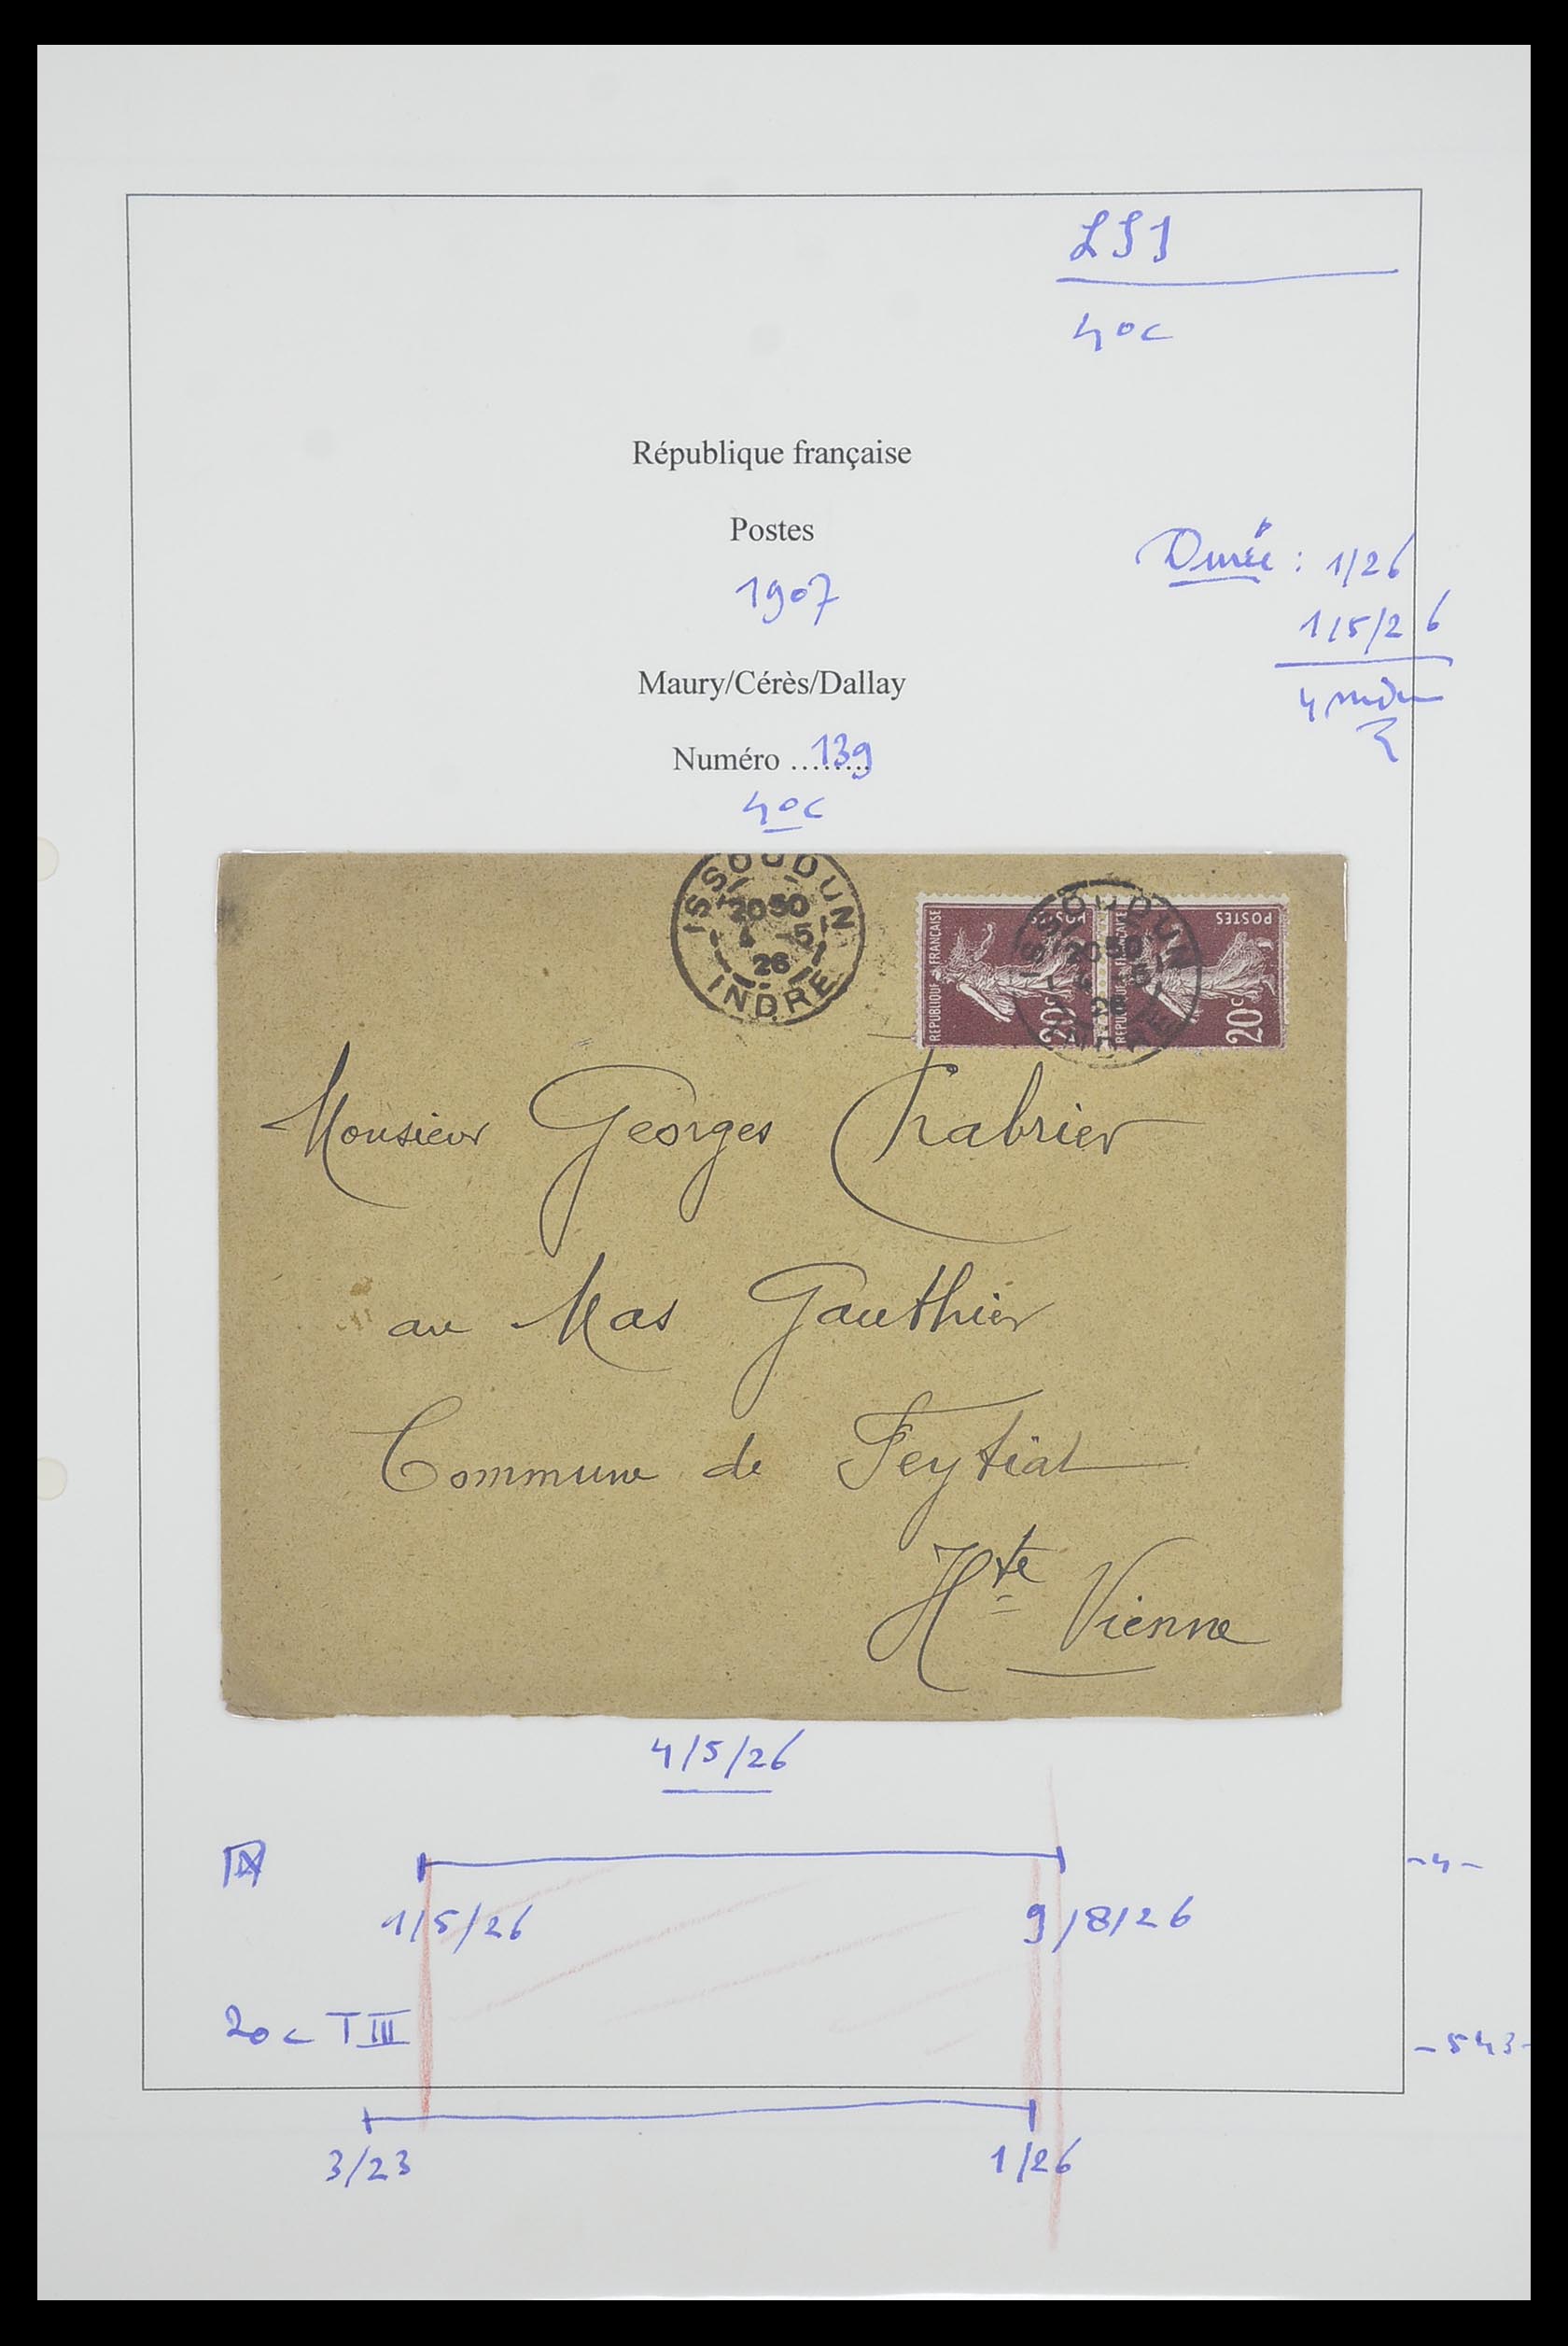 LSI
40c
République française
Postes
1907
Durée : 1/26
1/5/26
4
Maury/Cérès/Dallay
Numéro ........139
40c
ISSOUDUN
20 50
4 -5
26
INDRE
REPUBLIQUE FRANCAISE
POSTES
20c
ISSOUDUN
20 50
4 -5
26
INDRE
REPUBLIQUE FRANCAISE
POSTES
20c
Monsieur Georges Chabrier
au Mas Gauthier
Commune de Feytiat
Hte Vienne
4/5/26
-4-
1/5/26
9/8/26
20c TIII
-543-
3/23
1/26